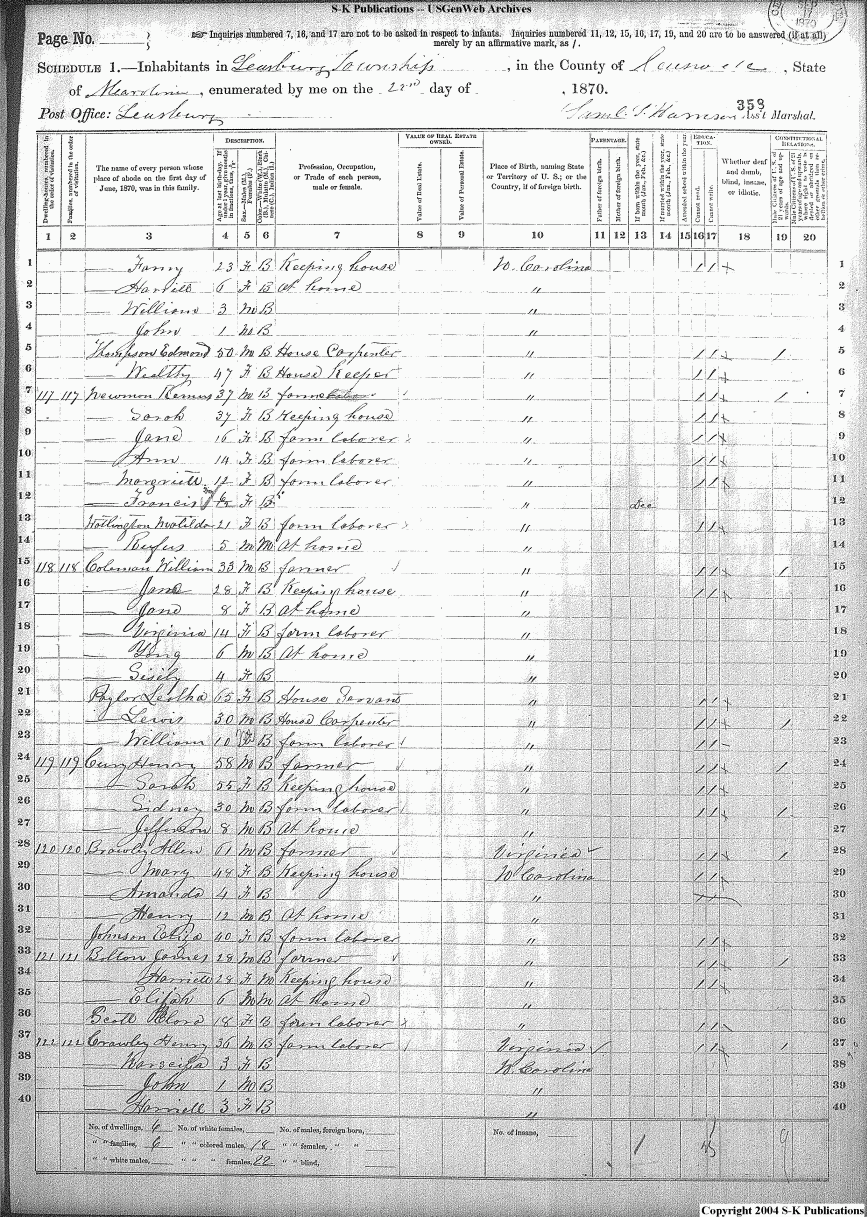 S-K Publications -- USGenWeb Archives
Page No.
Inquiries numbered 7, 16, and 17 are not to be asked in respect to infants. Inquiries numbered 11, 12, 15, 16, 17, 19, and 20 are to be answered (if at all)
merely by an affirmative mark, as /.
SCHEDULE 1.—Inhabitants in Leasburg Township, in the County of, State
of, enumerated by me on the 22nd day of, 1870.
353
Post Office: Leasburg
Ass't Marshal.
DESCRIPTION. VALUE OF REAL ESTATE OWNED. PARENTAGE. EDUCATION. CONSTITUTIONAL RELATIONS.
Dwelling-houses, numbered in the order of visitation.
Families, numbered in the order of visitation.
The name of every person whose place of abode on the first day of June, 1870, was in this family.
Profession, Occupation, or Trade of each person, male or female.
Value of Real Estate.
Place of Birth, naming State or Territory of U. S.; or the Country, if of foreign birth.
Father of foreign birth.
Mother of foreign birth.
Cannot read.
Cannot write.
Whether deaf and dumb, blind, insane, or idiotic.
1 2 3 4 5 6 7 8 9 10 11 12 13 14 15 16 17 18 19 20
1 — Fanny 23 F B Keeping house N. Carolina / / 1
2 — Harriett 6 F B At home " 2
3 — William 3 M B " 3
4 — John 1 M B " 4
5 Thompson Edmond 50 M B House Carpenter " / / / 5
6 — Wealthy 47 F B House Keeper " / / 6
7 117 117 Newmon Remus 37 M B " / / / 7
8 — Sarah 37 F B Keeping house " / / 8
9 — Jane 16 F B farm laborer " / / 9
10 — Ann 14 F B farm laborer " / / 10
11 — Margriett 12 F B farm laborer " / / 11
12 — Francis F B " Dec 12
13 Matilda 21 F B farm laborer " / / 13
14 — Rufus 5 M M At home " 14
15 118 118 Coleman William 33 M B farmer " / / / 15
16 — Jane 28 F B Keeping house " / / 16
17 — Jane 8 F B At home " 17
18 — Virginia 14 F B farm laborer " 18
19 — Yong 6 M B At home " 19
20 — Sisily 4 F B " 20
21 65 F B House Servant " / / 21
22 — Lewis 30 M B House Carpenter " / / / 22
23 — William 10 B farm laborer " / / 23
24 119 119 Henry 58 M B farmer " / / / 24
25 — Sarah 55 F B Keeping house " / / 25
26 — Sidney 30 M B farm laborer " / / / 26
27 — Jefferson 8 M B At home " 27
28 120 120 Brawley Allen 61 M B farmer Virginia / / / 28
29 — Mary 44 F B Keeping house N Carolina / / 29
30 — Amanda 4 F B " 30
31 — Henry 12 M B At home " 31
32 Johnson Eliza 40 F B farm laborer " / / 32
33 121 121 Bolton James 28 M B farmer " / / / 33
34 — Harriett 28 F M Keeping house " / / 34
35 — Elijah 6 M M At home " 35
36 Scott 18 F B farm laborer " / / 36
37 122 122 Crawley Henry 36 M B farm laborer Virginia / / / 37
38 — 3 F B N. Carolina 38
39 — John 1 M B " 39
40 — 3 F B " 40
No. of dwellings, 6 No. of white females, No. of males, foreign born, No. of insane,
" " families, 6 " " colored males, 18 " " females, " "
" " white males, " " " females, 22 " " blind,
1 9
Copyright 2004 S-K Publications